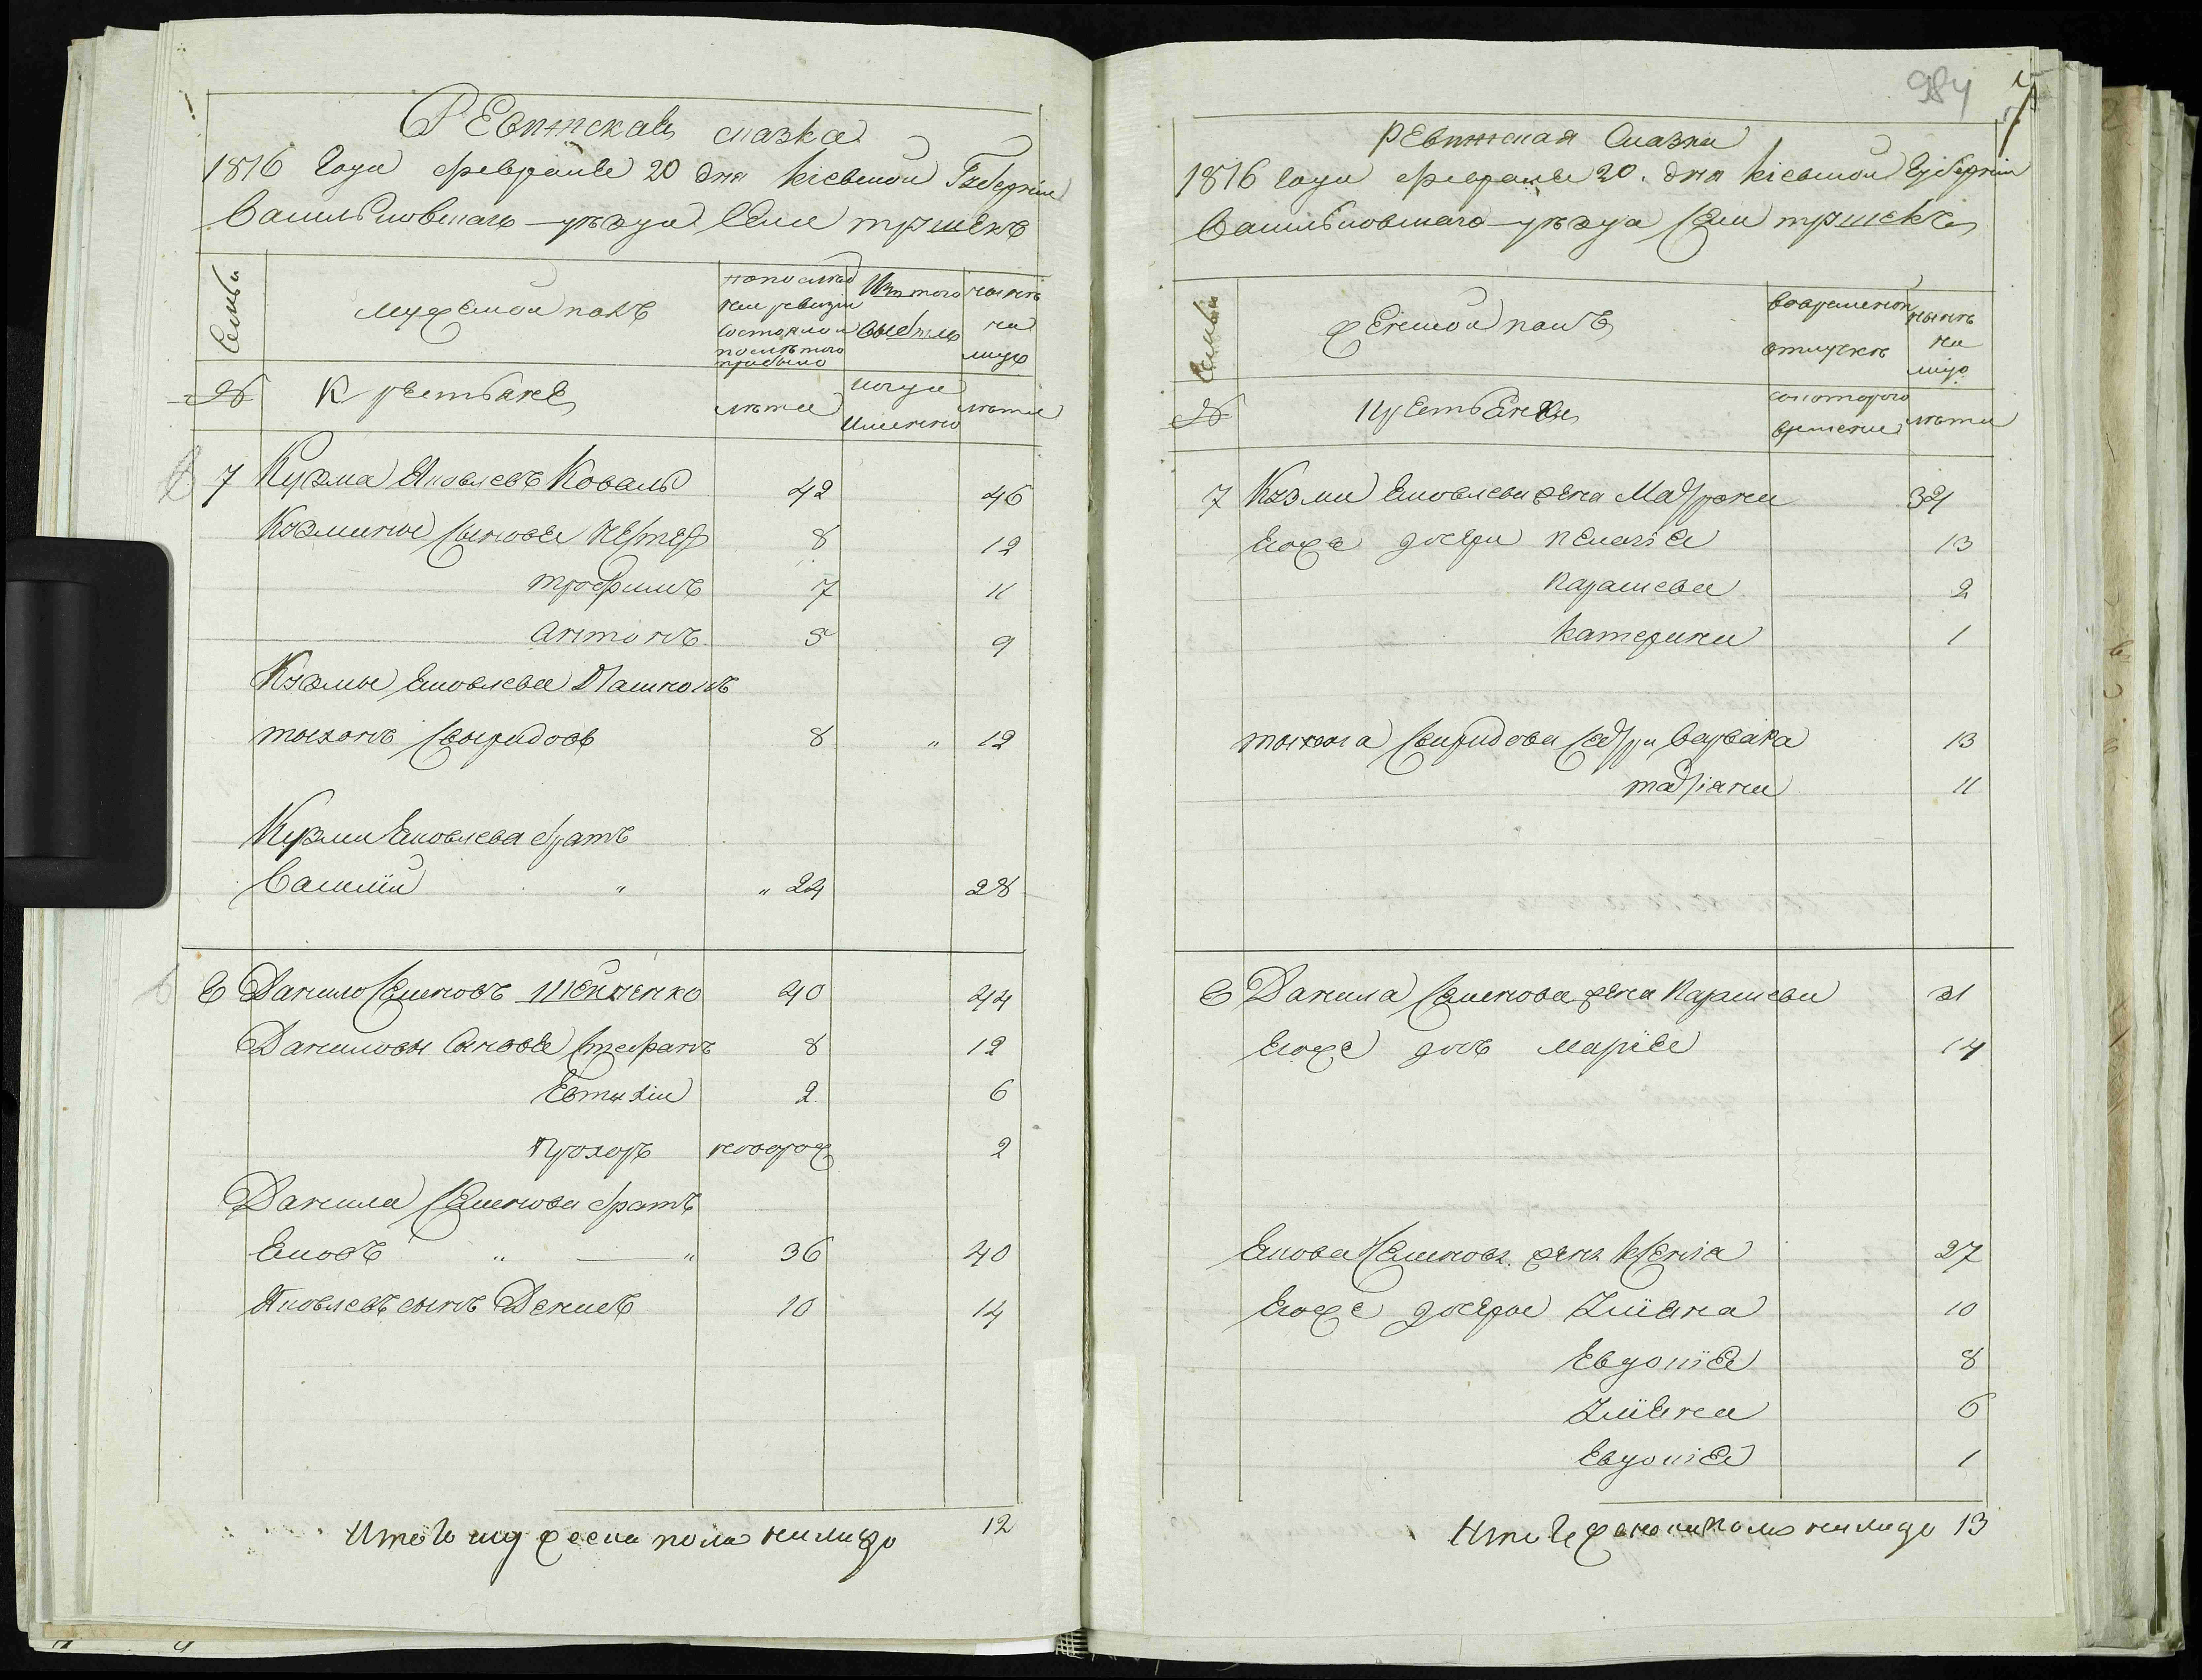 Ревижская сказка
1816 Года февраля 20 дня Кіевской Губерніи
Васильковскаго уезда Села Тришекъ
Семьи
мужеской полъ
по последней ревизіи состояло и после того прибыло
Изъ того выбыло
ныне на лицо
№
Крестьяне
лета
когда именно
лета
7 Кузма Яковлевъ Коваль 42 46
Кузмины Сынове Нестер 8 12
трофимъ 7 11
антонъ 5 9
Кузмы Яковлева
тыхонъ Свиридовъ 8 " 12
Кузми Яковлева братъ
Василій " " 24 28
8 Данило Семеновъ 40 44
Даниловы Сынове Стефанъ 8 12
Евтихіи 2 6
Прохоръ новорож 2
Данила Семенова братъ
Яковъ " — " 36 40
Яковлевъ сынъ Денисъ 10 14
Итого мужеска пола налицо 12
984
7
ревижская Сказка
1816 Года февраля 20. дня Кіевской Губерніи
Васильковскаго уезда Села тришекъ
Семьи
Женской полъ
во временной отлучке
ныне на лицо
№
крестьянки
с котораго времени
лета
7 Кузми Яковлева жена Мадрона 34
Егоже дочери Пелагія 13
Параскева 2
Катерина 1
тыхона Свиридова Сестри Варвара 13
тадіяна 11
8 Данила Семенова жена Параскева 31
Егоже дочь Марія 14
Якова Семенова жена Ксенія 27
Егоже дочеры Уліяна 10
Евдокія 8
Уліяна 6
Евдокія 1
Итого женска пола налицо 13